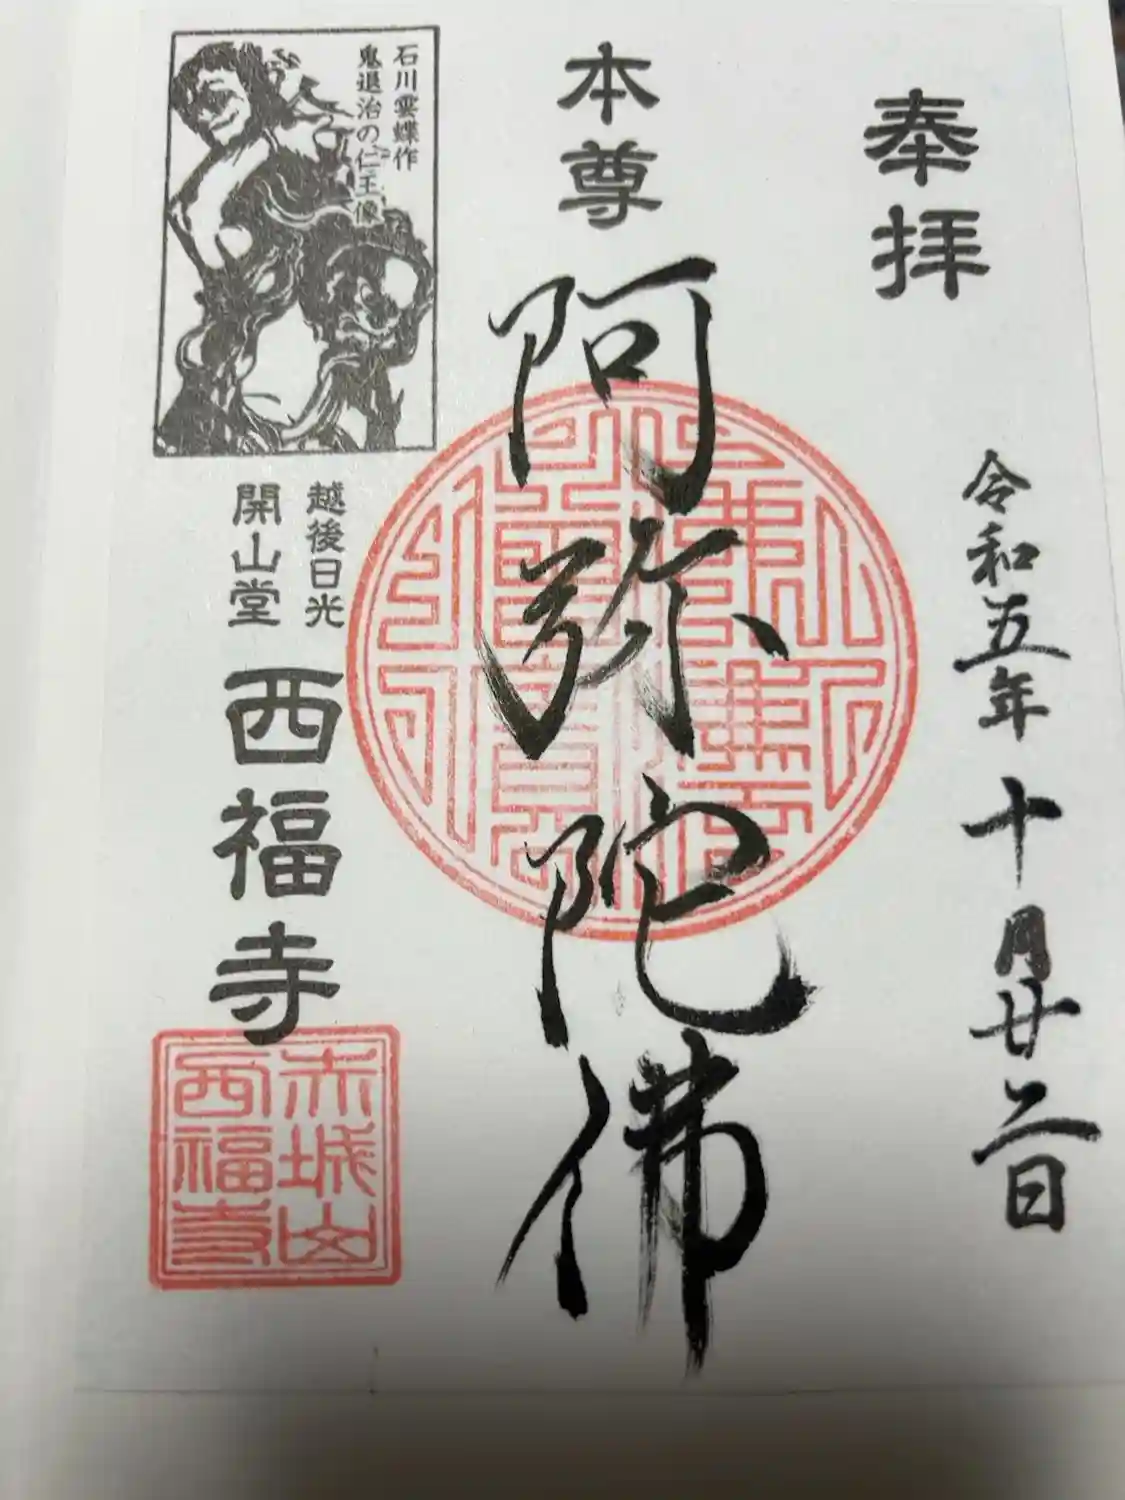 奉拝
令和五年十月廿二日
本尊
阿弥陀佛
石川雲蝶作
鬼退治の仁王像
越後日光
開山堂
西福寺
赤城山
西福寺